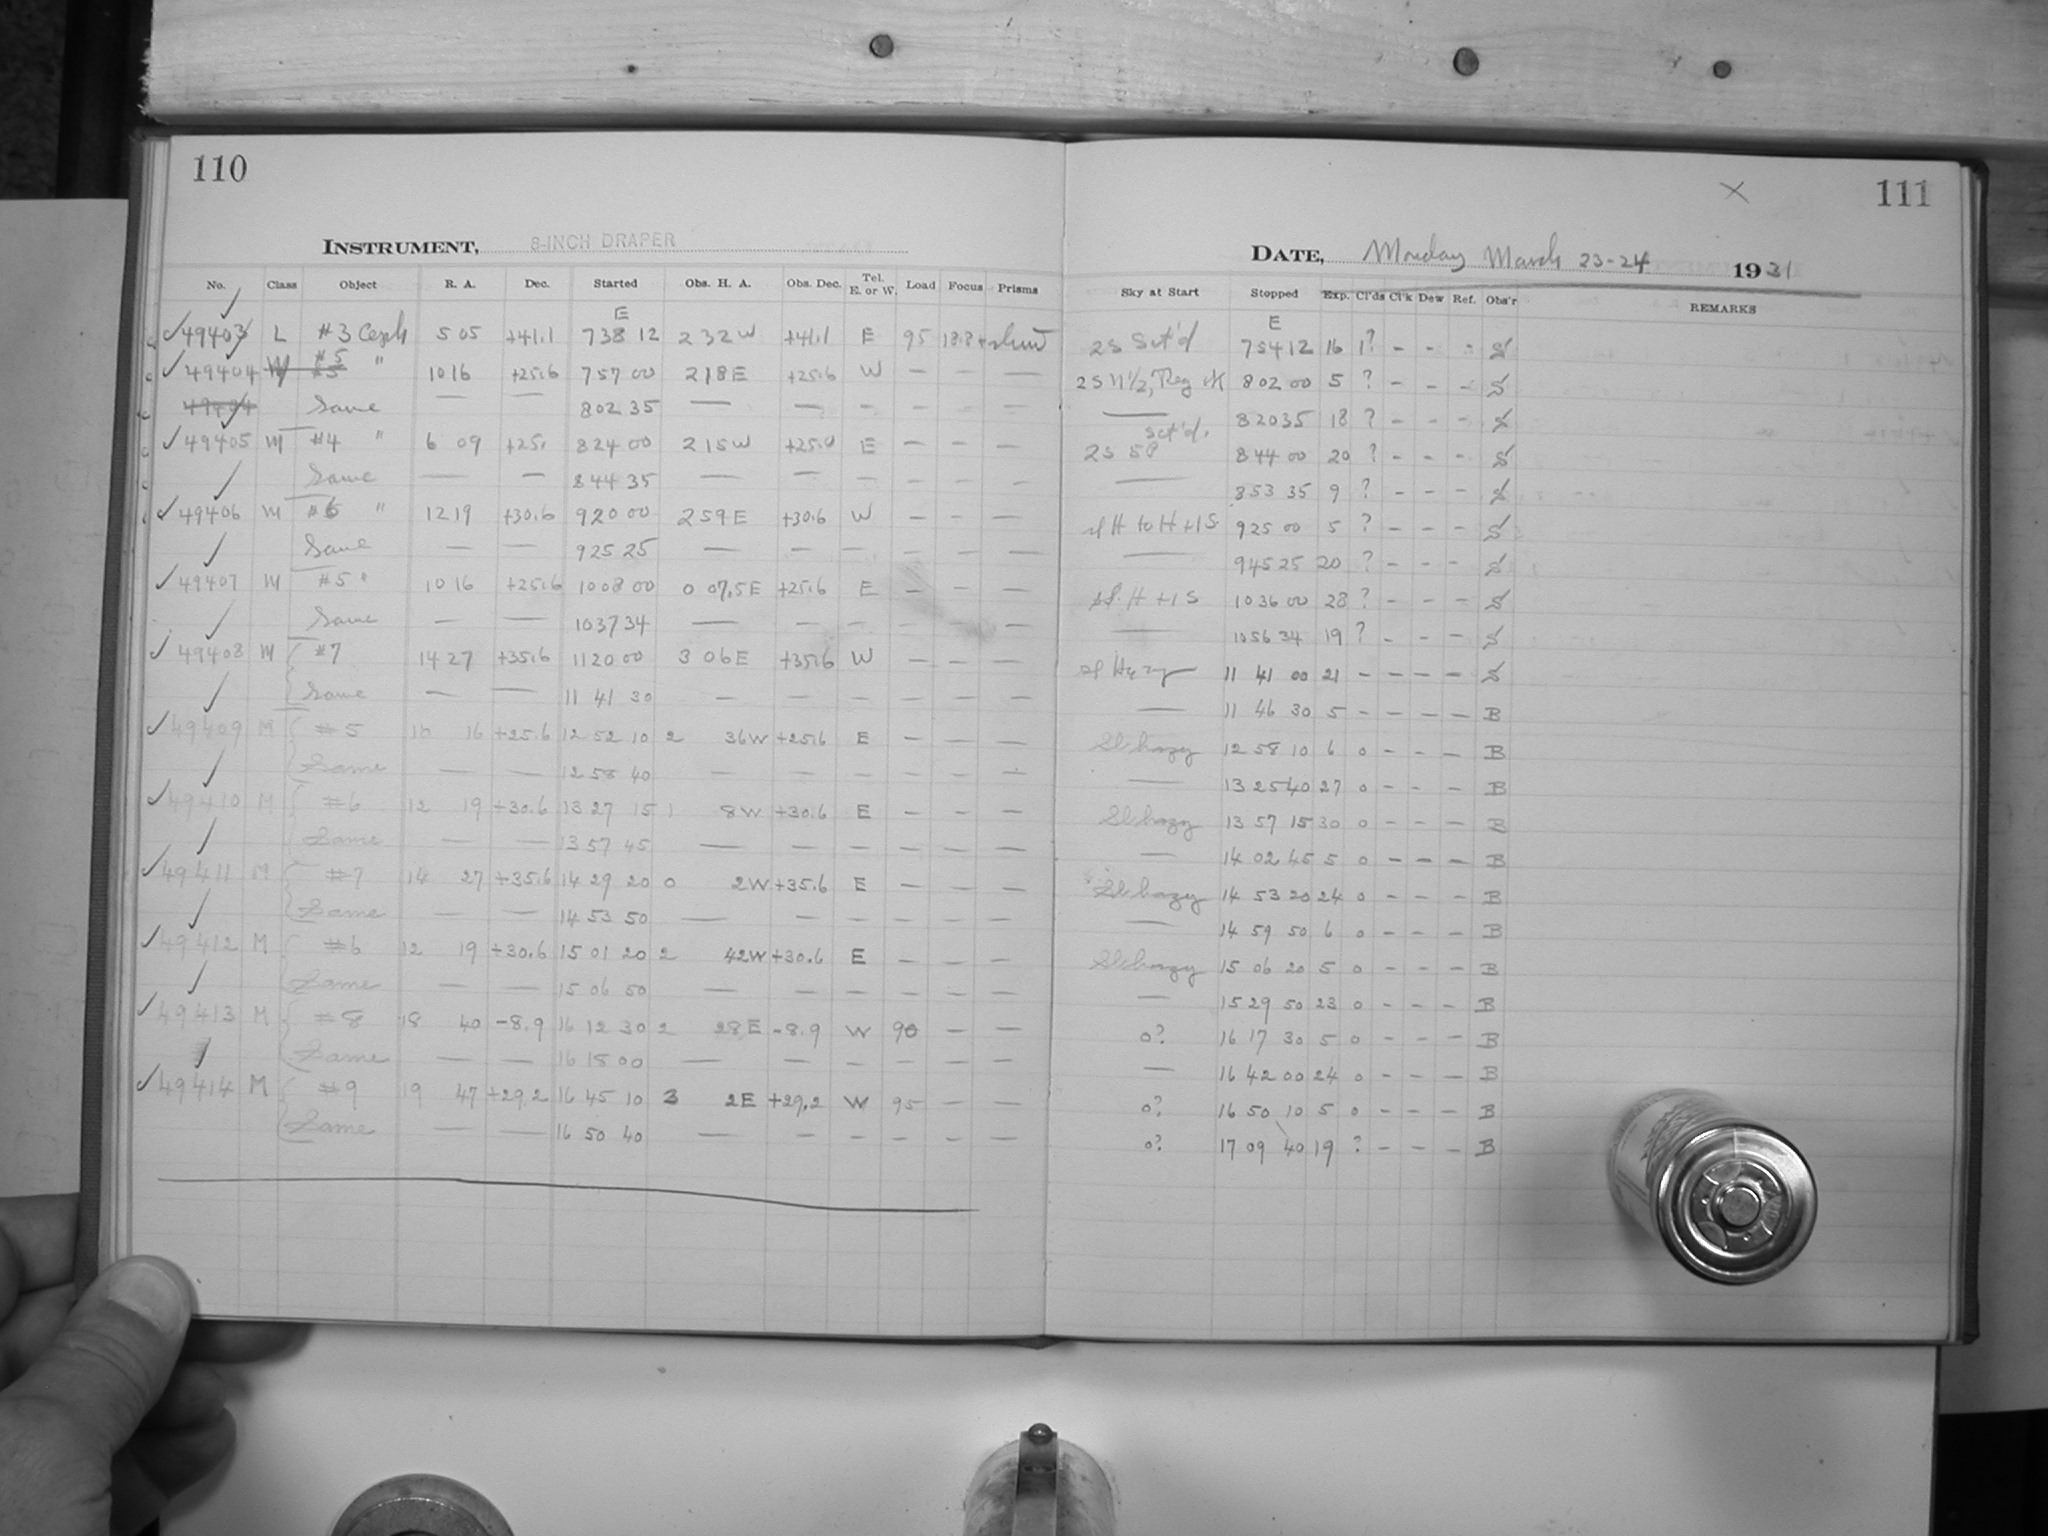 110
111
INSTRUMENT, 8-INCH DRAPER
DATE, Monday March 23-24 1931
No. Class Object R. A. Dec. Started Obs. H. A. Obs. Dec. Tel. E. or W. Load Focus Prisms Sky at Start Stopped Exp. Cl'ds Cl'k Dew Ref. Obs'r REMARKS
E E
49403 L #3 Ceph 5 05 +41.1 738 12 2 32 W +41.1 E 95 2S Sct'd 754 12 16 1? - - - S
49404 M #5 " 10 16 +25.6 757 00 2 18 E +25.6 W — — — 802 00 5 ? - - - S
49404 Same — — 802 35 — — — — — — — 820 35 18 ? - - - S
49405 M #4 " 6 09 +25. 824 00 2 15 W +25.0 E — — — 2S Sct'd. 844 00 20 ? - - - S
Same — — 844 35 — — — — — — — 853 35 9 ? - - - S
49406 M #6 " 12 19 +30.6 920 00 2 59 E +30.6 W — — — sl H to H +1S 925 00 5 ? - - - S
Same — — 925 25 — — — — — — — 945 25 20 ? - - - S
49407 M #5 " 10 16 +25.6 1008 00 0 07.5 E +25.6 E — — — sl. H +1S 1036 00 28 ? - - - S
Same — — 1037 34 — — — — — — — 1056 34 19 ? - - - S
49408 M #7 14 27 +35.6 1120 00 3 06 E +35.6 W — — — sl Hazy 11 41 00 21 - - - - S
Same — — 11 41 30 — — — — — — — 11 46 30 5 - - - - B
49409 M #5 10 16 +25.6 12 52 10 2 36 W +25.6 E — — — Sl hazy 12 58 10 6 0 - - - B
Same — — 12 58 40 — — — — — — — 13 25 40 27 0 - - - B
49410 M #6 12 19 +30.6 13 27 15 1 8 W +30.6 E — — — Sl hazy 13 57 15 30 0 - - - B
Same — — 13 57 45 — — — — — — — 14 02 45 5 0 - - - B
49411 M #7 14 27 +35.6 14 29 20 0 2 W +35.6 E — — — Sl hazy 14 53 20 24 0 - - - B
Same — — 14 53 50 — — — — — — — 14 59 50 6 0 - - - B
49412 M #6 12 19 +30.6 15 01 20 2 42 W +30.6 E — — — Sl hazy 15 06 20 5 0 - - - B
Same — — 15 06 50 — — — — — — — 15 29 50 23 0 - - - B
49413 M #8 18 40 -8.9 16 12 30 2 28 E -8.9 W 90 — — 0? 16 17 30 5 0 - - - B
Same — — 16 18 00 — — — — — — — 16 42 00 24 0 - - - B
49414 M #9 19 47 +29.2 16 45 10 3 2 E +29.2 W 95 — — 0? 16 50 10 5 0 - - - B
Same — — 16 50 40 — — — — — — 0? 17 09 40 19 ? - - - B